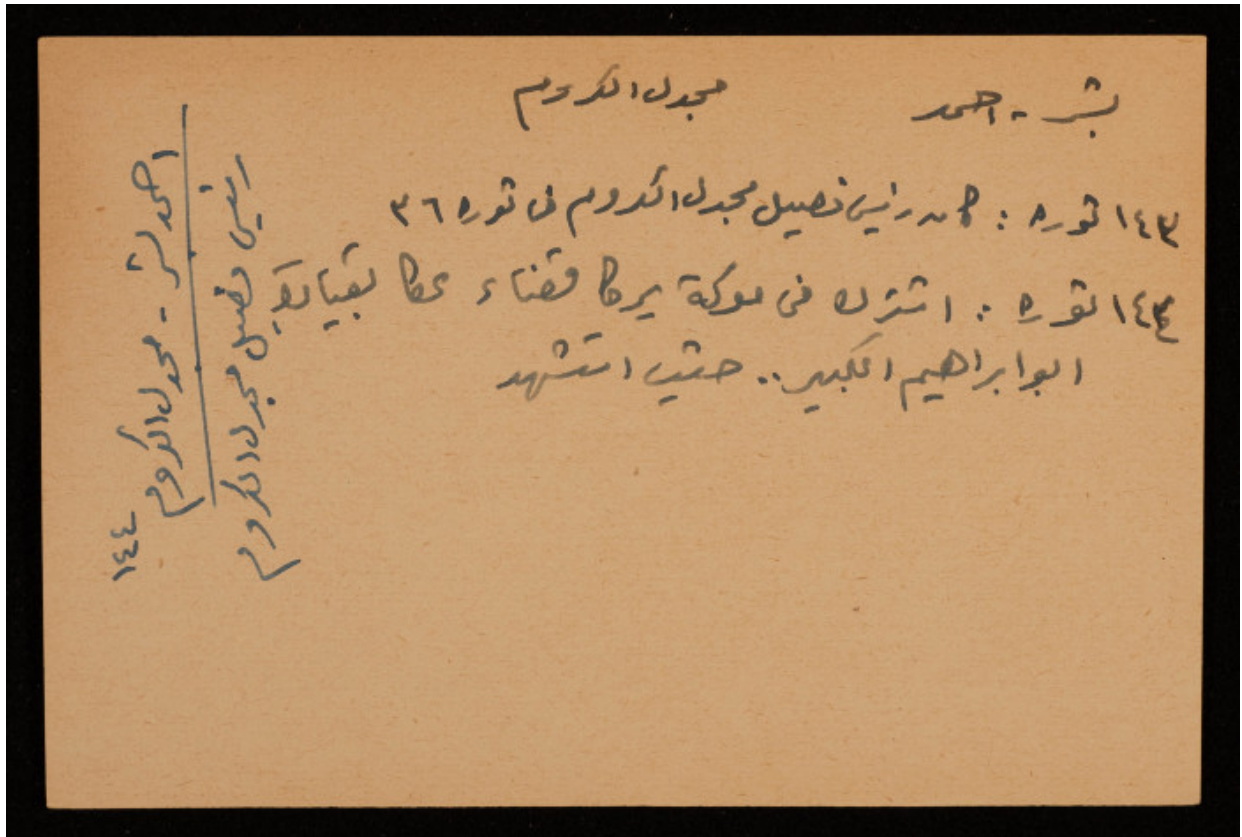 بشر - احمد
مجدل الكروم
١٤٣ ثوره : كان رئيس فصيل مجدل الكروم في ثوره ٣٦
١٤٤ ثوره : اشترك في معركة يركا قضاء عكا بقيادة
ابو ابراهيم الكبير .. حتى استشهد
احمد بشر - مجدل الكروم
١٤٤
رئيس فصيل مجدل الكروم